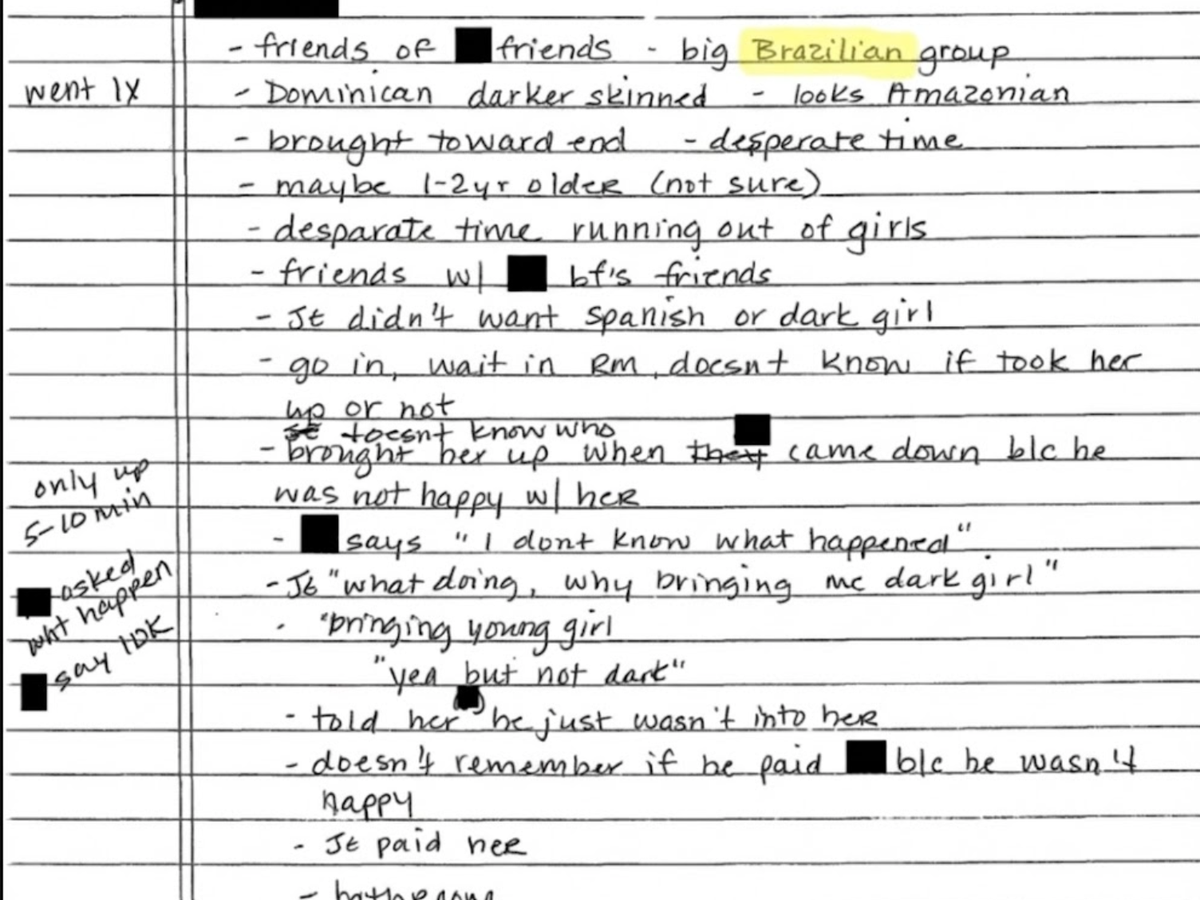 - friends of friends - big Brazilian group
went 1x
- Dominican darker skinned - looks Amazonian
- brought toward end - desperate time
- maybe 1-2yr older (not sure)
- desparate time running out of girls
- friends w/ bf's friends
- JE didn't want spanish or dark girl
- go in, wait in RM, doesnt know if took her
up or not
doesnt know who
- brought her up when they came down b/c he
was not happy w/ her
only up
5-10 min
- says "I dont know what happened"
- JE "what doing, why bringing me dark girl"
asked
wht happen
say IDK
"bringing young girl
"yea but not dark"
- told her he just wasn't into her
- doesn't remember if he paid b/c he wasn't
happy
- JE paid her
- bathroom